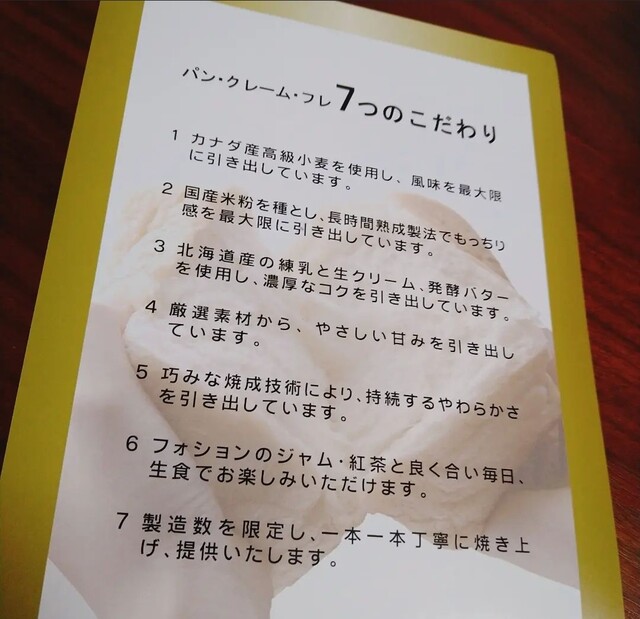 パン・クレーム・フレ 7つのこだわり
1 カナダ産高級小麦を使用し、風味を最大限
に引き出しています。
2 国産米粉を種とし、長時間熟成製法でもっちり
感を最大限に引き出しています。
3 北海道産の練乳と生クリーム、発酵バター
を使用し、濃厚なコクを引き出しています。
4 厳選素材から、やさしい甘みを引き出し
ています。
5 巧みな焼成技術により、持続するやわらかさ
を引き出しています。
6 フォションのジャム・紅茶と良く合い毎日、
生食でお楽しみいただけます。
7 製造数を限定し、一本一本丁寧に焼き上
げ、提供いたします。